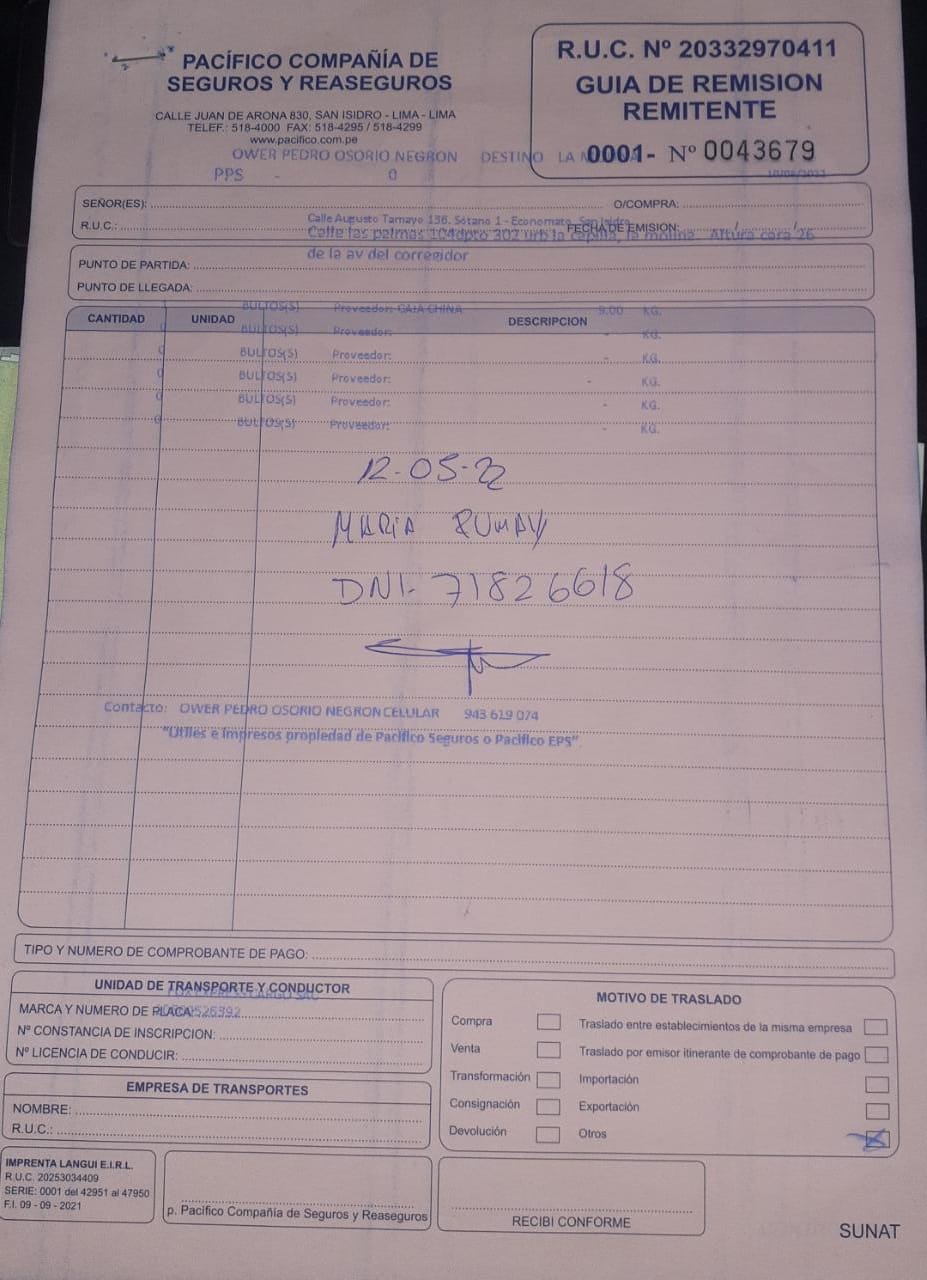 PACÍFICO COMPAÑÍA DE
SEGUROS Y REASEGUROS
CALLE JUAN DE ARONA 830, SAN ISIDRO - LIMA - LIMA
TELEF.: 518-4000 FAX: 518-4295 / 518-4299
www.pacifico.com.pe
R.U.C. Nº 20332970411
GUIA DE REMISION
REMITENTE
0001- Nº 0043679
OWER PEDRO OSORIO NEGRON DESTINO LA
PPS - 0
SEÑOR(ES): O/COMPRA:
R.U.C.: FECHA DE EMISION:
Calle Augusto Tamayo 156, Sótano 1 - Economato, San Isidro
Calle las palmas 104dpto 302 urb la capilla, la molina. Altura cdra 26
de la av del corregidor
PUNTO DE PARTIDA:
PUNTO DE LLEGADA:
CANTIDAD UNIDAD DESCRIPCION
BULTOS(S) Proveedor: CAJA CHINA 9.00 KG.
0 BULTOS(S) Proveedor: - KG.
0 BULTOS(S) Proveedor: - KG.
0 BULTOS(S) Proveedor: - KG.
0 BULTOS(S) Proveedor: - KG.
0 BULTOS(S) Proveedor: - KG.
12-05-22
MARIA PUMAY
DNI- 71826618
Contacto: OWER PEDRO OSORIO NEGRON CELULAR 943 619 074
"Utiles e Impresos propiedad de Pacifico Seguros o Pacifico EPS"
TIPO Y NUMERO DE COMPROBANTE DE PAGO:
UNIDAD DE TRANSPORTE Y CONDUCTOR
MARCA Y NUMERO DE PLACA:
Nº CONSTANCIA DE INSCRIPCION:
Nº LICENCIA DE CONDUCIR:
EMPRESA DE TRANSPORTES
NOMBRE:
R.U.C.:
MOTIVO DE TRASLADO
Compra
Venta
Transformación
Consignación
Devolución
Traslado entre establecimientos de la misma empresa
Traslado por emisor itinerante de comprobante de pago
Importación
Exportación
Otros
IMPRENTA LANGUI E.I.R.L.
R.U.C. 20253034409
SERIE: 0001 del 42951 al 47950
F.I. 09 - 09 - 2021
p. Pacífico Compañía de Seguros y Reaseguros
RECIBI CONFORME
SUNAT